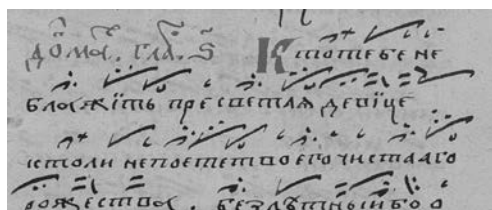 догма. гла. ѕ҃ Ктотебене
блажіть пресветлая девіце
истоли непоететвоегочистааго
рожества. безлѣтныибоо